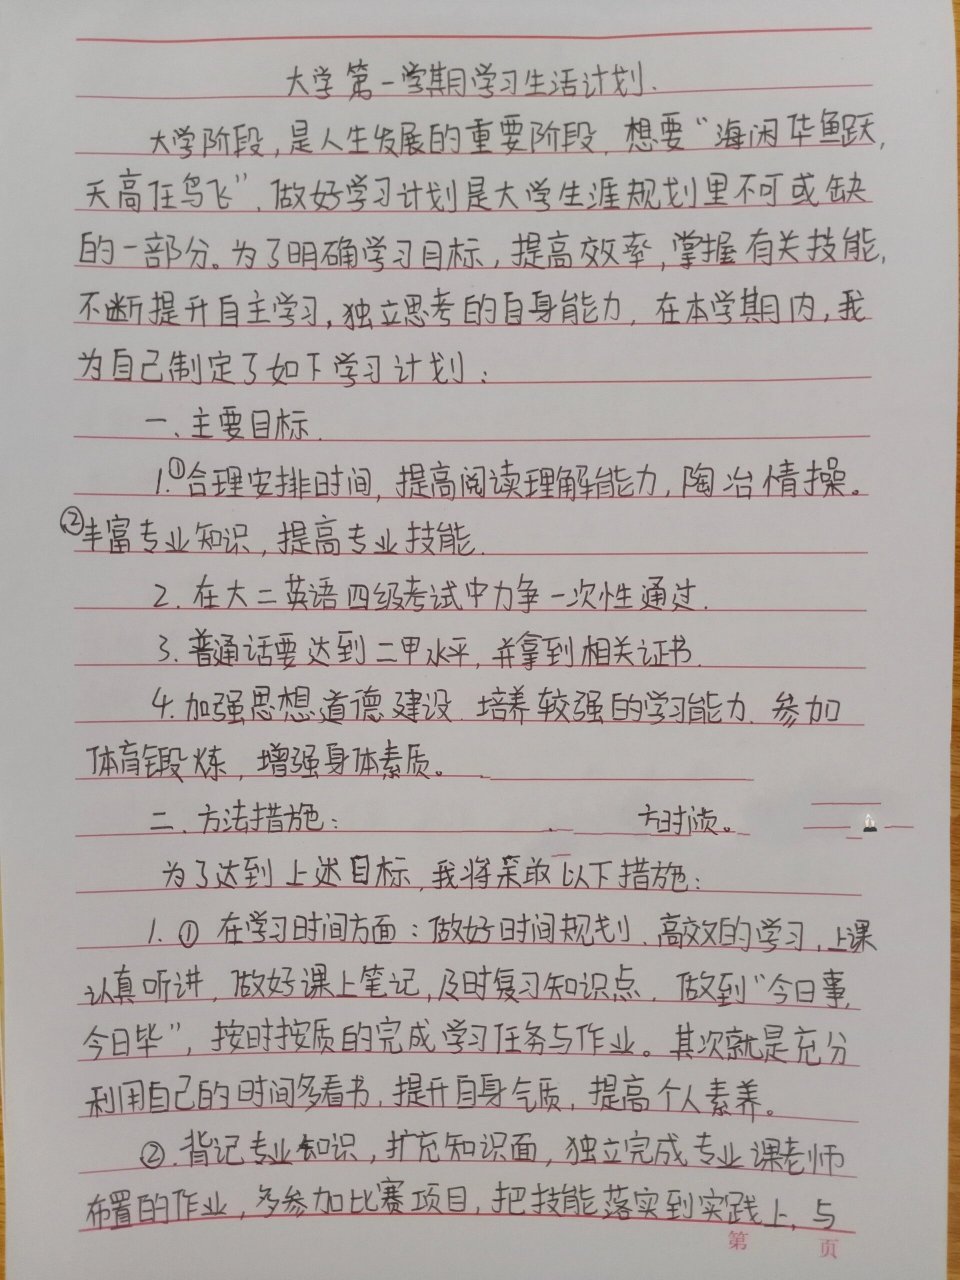 大学第一学期学习生活计划.
大学阶段，是人生发展的重要阶段，想要“海闲华鱼跃，
天高任鸟飞”，做好学习计划是大学生涯规划里不可或缺
的一部分。为了明确学习目标，提高效率，掌握有关技能，
不断提升自主学习，独立思考的自身能力，在本学期内，我
为自己制定了如下学习计划：
一、主要目标.
1.①合理安排时间，提高阅读理解能力，陶冶情操。
②丰富专业知识，提高专业技能.
2.在大二英语四级考试中力争一次性通过.
3.普通话要达到二甲水平，并拿到相关证书.
4.加强思想道德建设.培养较强的学习能力.参加
体育锻炼，增强身体素质。
二.方法措施：
为了达到上述目标，我将采取以下措施：
1.①在学习时间方面：做好时间规划、高效的学习，上课
认真听讲，做好课上笔记，及时复习知识点.做到“今日事，
今日毕”，按时按质的完成学习任务与作业。其次就是充分
利用自己的时间多看书，提升自身气质，提高个人素养。
②.背记专业知识，扩充知识面，独立完成专业课老师
布置的作业，多参加比赛项目，把技能落实到实践上，与
第 页